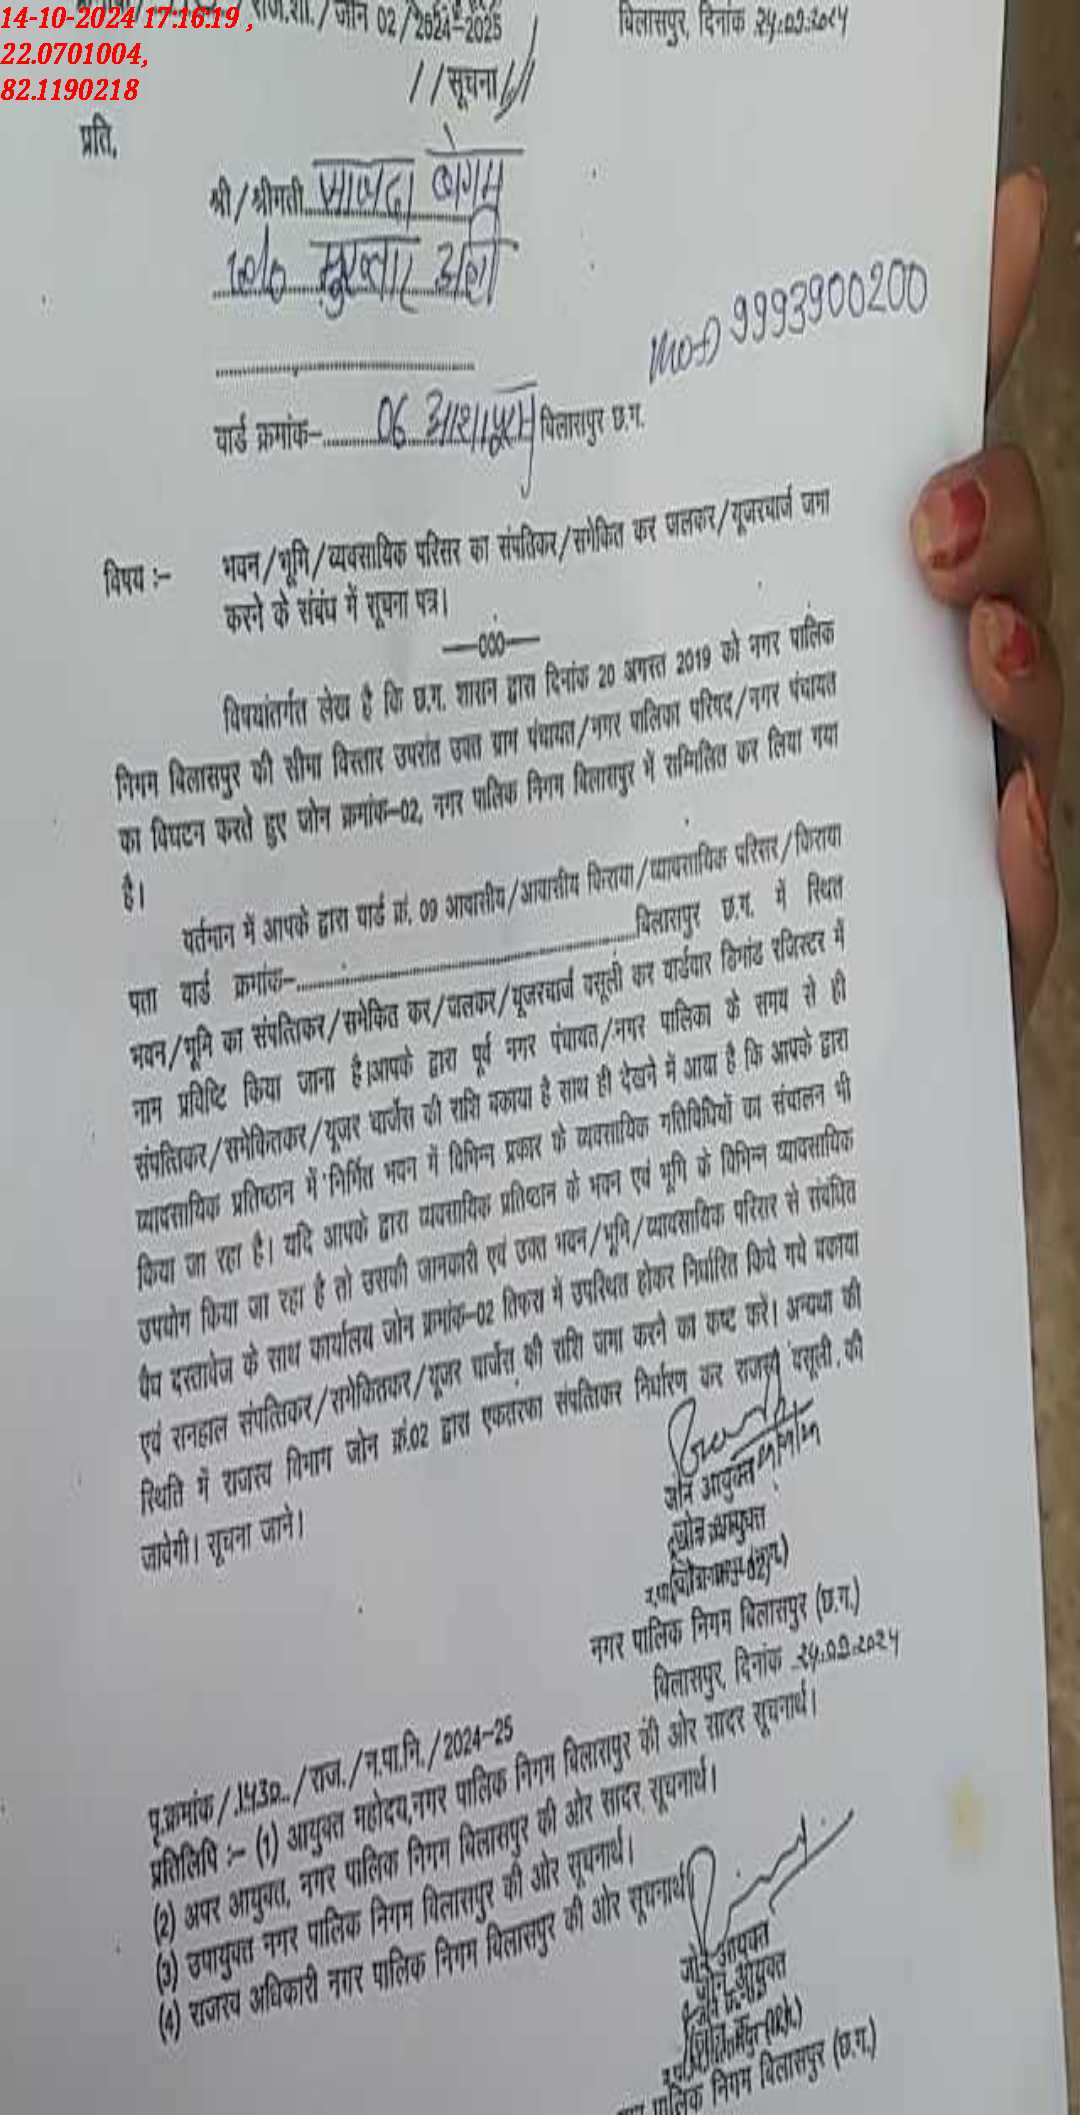 14-10-2024 17:16:19 ,
22.0701004,
82.1190218
राज.शा./जोन 02/2024-2025
बिलासपुर, दिनांक 24.09.2024
//सूचना//
प्रति,
श्री/श्रीमती साजदा बेगम
मुख्तार अली
Mob 9993900200
वार्ड क्रमांक- 06 बिलासपुर छ.ग.
विषय :- भवन/भूमि/व्यवसायिक परिसर का संपतिकर/समेकित कर जलकर/यूजरचार्ज जमा
करने के संबंध में सूचना पत्र।
—000—
विषयांतर्गत लेख है कि छ.ग. शासन द्वारा दिनांक 20 अगस्त 2019 को नगर पालिक
निगम बिलासपुर की सीमा विस्तार उपरांत उक्त ग्राम पंचायत/नगर पालिका परिषद/नगर पंचायत
का विघटन करते हुए जोन क्रमांक-02, नगर पालिक निगम बिलासपुर में सम्मिलित कर लिया गया
है।
वर्तमान में आपके द्वारा वार्ड क्रं. 09 आवासीय/आवासीय किराया/व्यावसायिक परिसर/किराया
पता वार्ड क्रमांक-..............................बिलासपुर छ.ग. में स्थित
भवन/भूमि का संपत्तिकर/समेकित कर/जलकर/यूजरचार्ज वसूली कर वार्डवार डिमांड रजिस्टर में
नाम प्रविष्टि किया जाना है।आपके द्वारा पूर्व नगर पंचायत/नगर पालिका के समय से ही
संपत्तिकर/समेकितकर/यूजर चार्जेस की राशि बकाया है साथ ही देखने में आया है कि आपके द्वारा
व्यावसायिक प्रतिष्ठान में निर्मित भवन में विभिन्न प्रकार के व्यवसायिक गतिविधियों का संचालन भी
किया जा रहा है। यदि आपके द्वारा व्यवसायिक प्रतिष्ठान के भवन एवं भूमि के विभिन्न व्यावसायिक
उपयोग किया जा रहा है तो उसकी जानकारी एवं उक्त भवन/भूमि/व्यावसायिक परिसर से संबंधित
वैध दस्तावेज के साथ कार्यालय जोन क्रमांक-02 तिफरा में उपस्थित होकर निर्धारित किये गये बकाया
एवं सनहाल संपत्तिकर/समेकितकर/यूजर चार्जेस की राशि जमा करने का कष्ट करें। अन्यथा की
स्थिति में राजस्व विभाग जोन क्रं.02 द्वारा एकतरफा संपत्तिकर निर्धारण कर राजस्व वसूली की
जावेगी। सूचना जाने।
जोन आयुक्त
जोन आयुक्त
नगर पालिक निगम बिलासपुर (छ.ग.)
बिलासपुर, दिनांक 24.09.2024
पृ.क्रमांक/1430/राज./न.पा.नि./2024-25
प्रतिलिपि :- (1) आयुक्त महोदय,नगर पालिक निगम बिलासपुर की ओर सादर सूचनार्थ।
(2) अपर आयुक्त, नगर पालिक निगम बिलासपुर की ओर सादर सूचनार्थ।
(3) उपायुक्त नगर पालिक निगम बिलासपुर की ओर सूचनार्थ।
(4) राजस्व अधिकारी नगर पालिक निगम बिलासपुर की ओर सूचनार्थ
जोन आयुक्त
जोन आयुक्त
पालिक निगम बिलासपुर (छ.ग.)